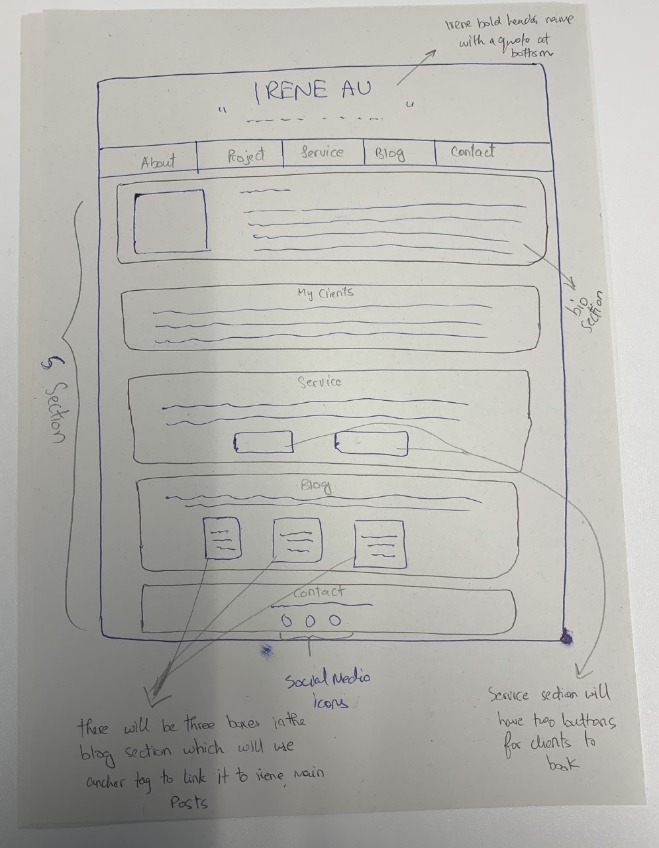 Irene bold header name
with a quote at
bottom
IRENE AU
" "
About Project Service Blog Contact
bio
section
My Clients
5 Section
Service
Blog
Contact
Social Media
icons
there will be three boxes in the
blog section which will use
anchor tag to link it to irene main
Posts
Service section will
have two buttons
for clients to
book